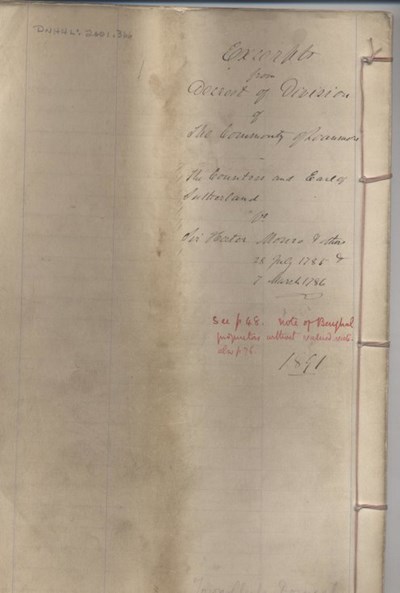 DNHHL: 2001.316
Excerpts
from
Decreet of Division
of
The Commonty of
The Countess and Earl of
Sutherland
Sir Hector Monro & others
28 July 1785 &
7 March 1786
See p 68. Note of Burghal
proprietors without
also p 76
1891